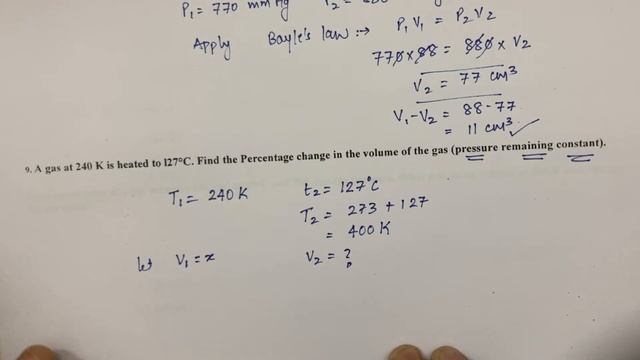 P₁ = 770 mm Hg
Apply Bayle's law :→ P₁ V₁ = P₂ V₂
770 × 88 = 880 × V₂
V₂ = 77 cm³
V₁-V₂ = 88-77
= 11 cm³ ✓
9. A gas at 240 K is heated to 127°C. Find the Percentage change in the volume of the gas (pressure remaining constant).
T₁ = 240 K t₂ = 127°C
T₂ = 273 + 127
= 400 K
let V₁ = x V₂ = ?